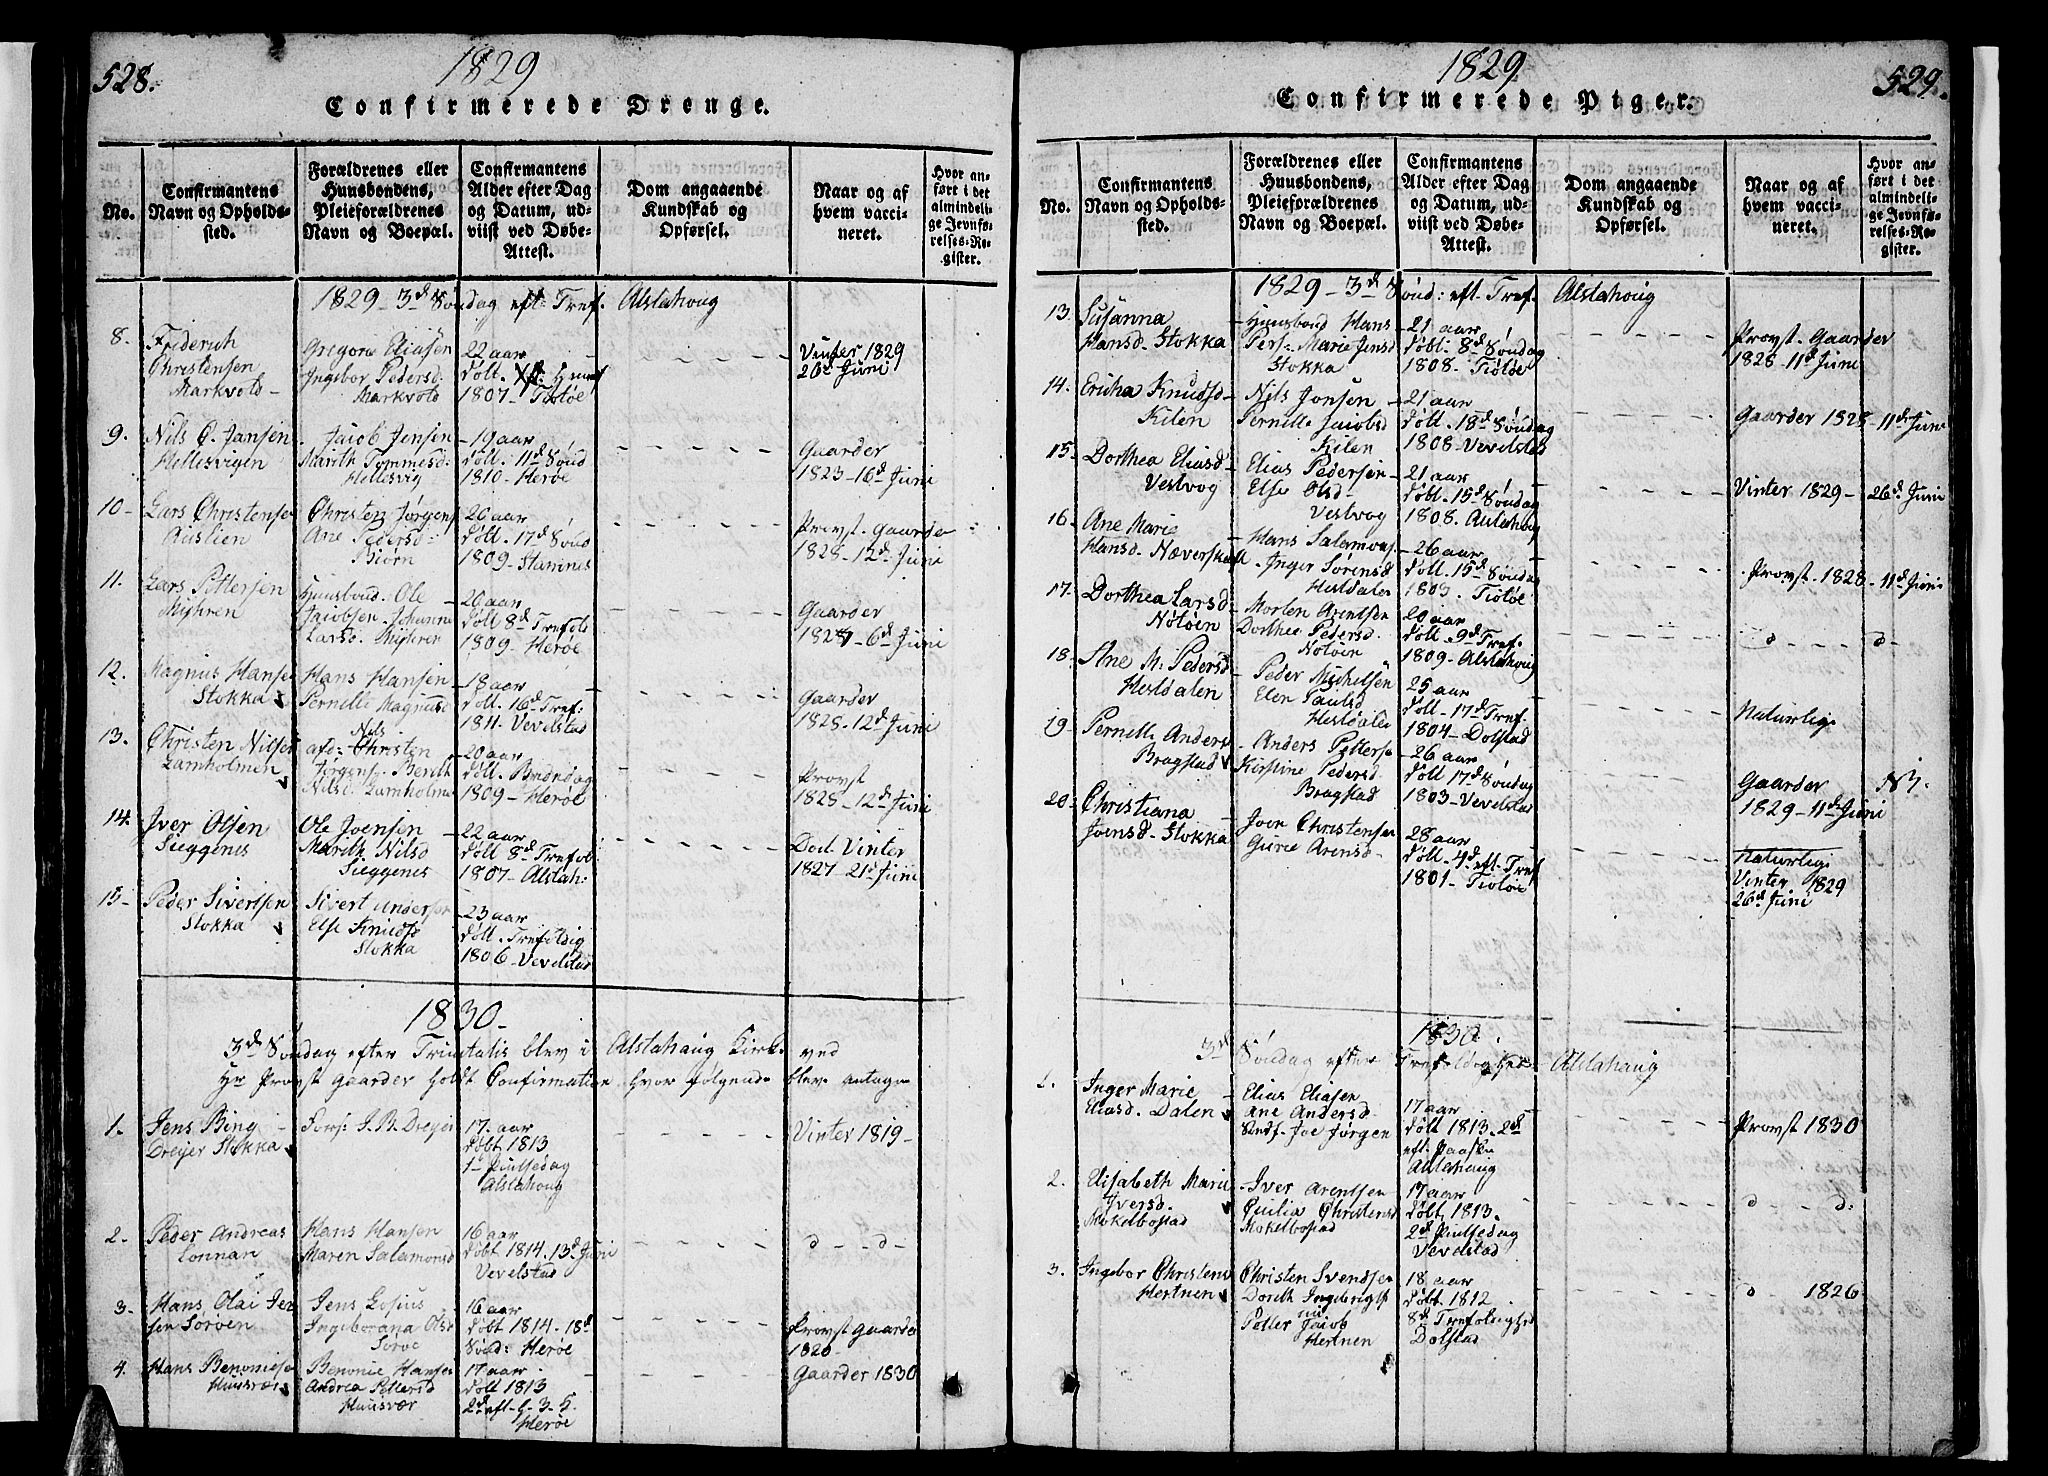 528.
1829
Confirmerede Drenge.
No.
Confirmantens
Navn og Opholds-
sted.
Forældrenes eller
Huusbondens,
Pleieforældrenes
Navn og Boepæl.
Confirmantens
Alder efter Dag
og Datum, ud-
viist ved Døbe-
Attest.
Dom angaaende
Kundskab og
Opførsel.
Naar og af
hvem vacci-
neret.
Hvor an-
ført i det
almindeli-
ge Jevnfø-
relses-Re-
gister.
1829 - 3d Søndag eft: Tref. Alstahoug
8.
Friderich
Christensen
Markvold
Gregora Eliasen
Ingebor Pedersd.
Markvold
22 aar
døbt.
1807 - Tiøtøe
Vinter 1829
26d Juni
9.
Nils C. Jansen
Hellesvigen
Jacob Jensen
Marith Tommesd:
Hellesvig
19 aar
døbt. 11d Sønd
1810 - Herøe
Gaarder
1823 - 16d Juni
10 -
Lars Christense
Auslien
Christen Jørgens
Ane Pedersd -
Biørn
20 aar
døbt. 17d Sønd
1809 - Stamnes
Provst. Gaarde
1828 - 12d Juni
11.
Lars Pettersen
Myhren
Huusbond: Ole
Jacobsen Johanne
Larsd. Myhren
20 aar
døbt 8d Trefold
1809 - Herøe
Gaarder
1827 - 6d Juni
12.
Magnus Hanse
Stokka
Hans Hansen
Pernelle Magnusd
18 aar
døbt. 16d Tref.
1811. Vevelstad
Gaarder
1828 - 12d Juni
13.
Christen Nilsen
Lamholmen
Nils
afd: Christen
Jørgens. Berith
Nilsd. Lamholme
20 aar
døbt.
1809 - Herøe
Provst
1828 - 12d Juni
14.
Iver Olsen
Sieggenes
Ole Joensen
Marith Nilsd
Sieggenes
22 aar
døbt 8d Trefol:
1807 - Alstah:
Doct. Vinter
1827 - 21d Juni
15 -
Peder Sivertsen
Stokka
Sivert Anderse
Else Knudsd
Stokka
23 aar
døbt. Trefoldig
1806 - Vevelstad
1830 -
3d Søndag efter Trinitatis blev i Alstahaug Kirke ved
Hr Provst Gaarder holdt Confirmation, hvor følgende blev antagne
1.
Jens Bing
Dreyer Stokka
Sorsk: J. B. Dreyer
17. aar
døbt 1813
1ste Pintsedag
Alstahoug
Vinter 1819 -
2.
Peder Andreas
Lonnan
Hans Hansen
Maren Salamonsd
16 aar
døbt 1814. 13d Juni
Vevelstad
d - - d -
3 -
Hans Olai Jen
sen Sørøen
Jens Losius
Ingeborana Olsd
Sørøe
16 aar
døbt 1814 - 18d
Sønd: Herøe
Provst Gaarde
1820 -
4.
Hans Benonise
Huusvær
Benonie Hansen
Andrea Pettersd
Huusvær
17 aar
døbt 1813
2d eft - S - 3 - 5.
Herøe
Gaarder 1830
1829
529.
Confirmerede Piger.
No.
Confirmantens
Navn og Opholds-
sted.
Forældrenes eller
Huusbondens,
Pleieforældrenes
Navn og Boepæl.
Confirmantens
Alder efter Dag
og Datum, ud-
viist ved Døbe-
Attest.
Dom angaaende
Kundskab og
Opførsel.
Naar og af
hvem vacci-
neret.
Hvor an-
ført i det
almindeli-
ge Jevnfø-
relses-Re-
gister.
1829 - 3d Sønd: eft. Tref. Alstahoug
13.
Susanna
Hansd. Stokka
Huusbond Hans
Pers: Marie Jensd
Stokka
21 aar
døbt: 8d Søndag
1808. Tiøtøe
Provst. Gaarder
1828 - 11d Juni
14.
Ericha Knudsd
Kilen
Nils Jonsen
Pernelle Jacobsd
Kilen
21 aar
døbt. 18d Søndag
1808 - Vevelstad
Gaarder 1828 - 11d Juni
15.
Dorthea Eliasd
Vestvog
Elias Pedersen
Else Olsd -
Vestvog
21 aar
døbt. 15d Søndag
1808. Alstahoug
Vinter 1829 - 26d Juni
16.
Ane Marie
Hansd. Næverskall
Hans Salamons
Inger Sørensd
Hestdalen
26 aar
døbt. 15d Søndag
1803. Tiøtøe
Provst. 1828 - 11d Juni
17.
Dorthea Larsd
Nøtøen
Morten Arentsen
Dorthea Pedersd.
Nøtøen
20 aar
døbt. 9d Tref.
1809 - Alstahoug
d - - d -
18.
Ane M. Pedersd
Hestdalen
Peder Michelsen
Elen Paulsd
Hestdalen
25 aar
døbt - 17d Tref.
1804 - Dolstad
Naturlige
19.
Pernelle Anders
Bragstad
Anders Petterse
Kirstine Pedersd.
Bragstad
26 aar
døbt 17d Søndag
1803 - Vevelstad
Gaarder
1829 - 11d Juni
20.
Christiana
Joensd. Stokka
Joen Christensen
Gurie Arensd -
28 aar
døbt. 4d eft. Tref
1801 - Tiøtøe
Naturlige
Vinter 1829
26d Juni
1830.
3d Søndag efter Trefoldighed Alstahaug
1.
Inger Marie
Eliasd. Dalen
Elias Eliasen
Ane Andersd.
17 aar
døbt 1813 - 2d
eft. Paaske
Alstahaug
Provst 1830
2.
Elisabeth Marie
Iversd.
Mokelbostad
Iver Arentsen
Cicilia Christensd
Mokelbostad
17 aar
døbt 1813.
2d Pintsedag
Vevelstad
d - d.
3.
Ingebor Christens
Hertnen
Christen Svendsen
Dorith Ingebrigts
nu
Petter Jacob
Hertnen
18 aar
døbt 1812
8d Trefoldighed
Dolstad
d 1826